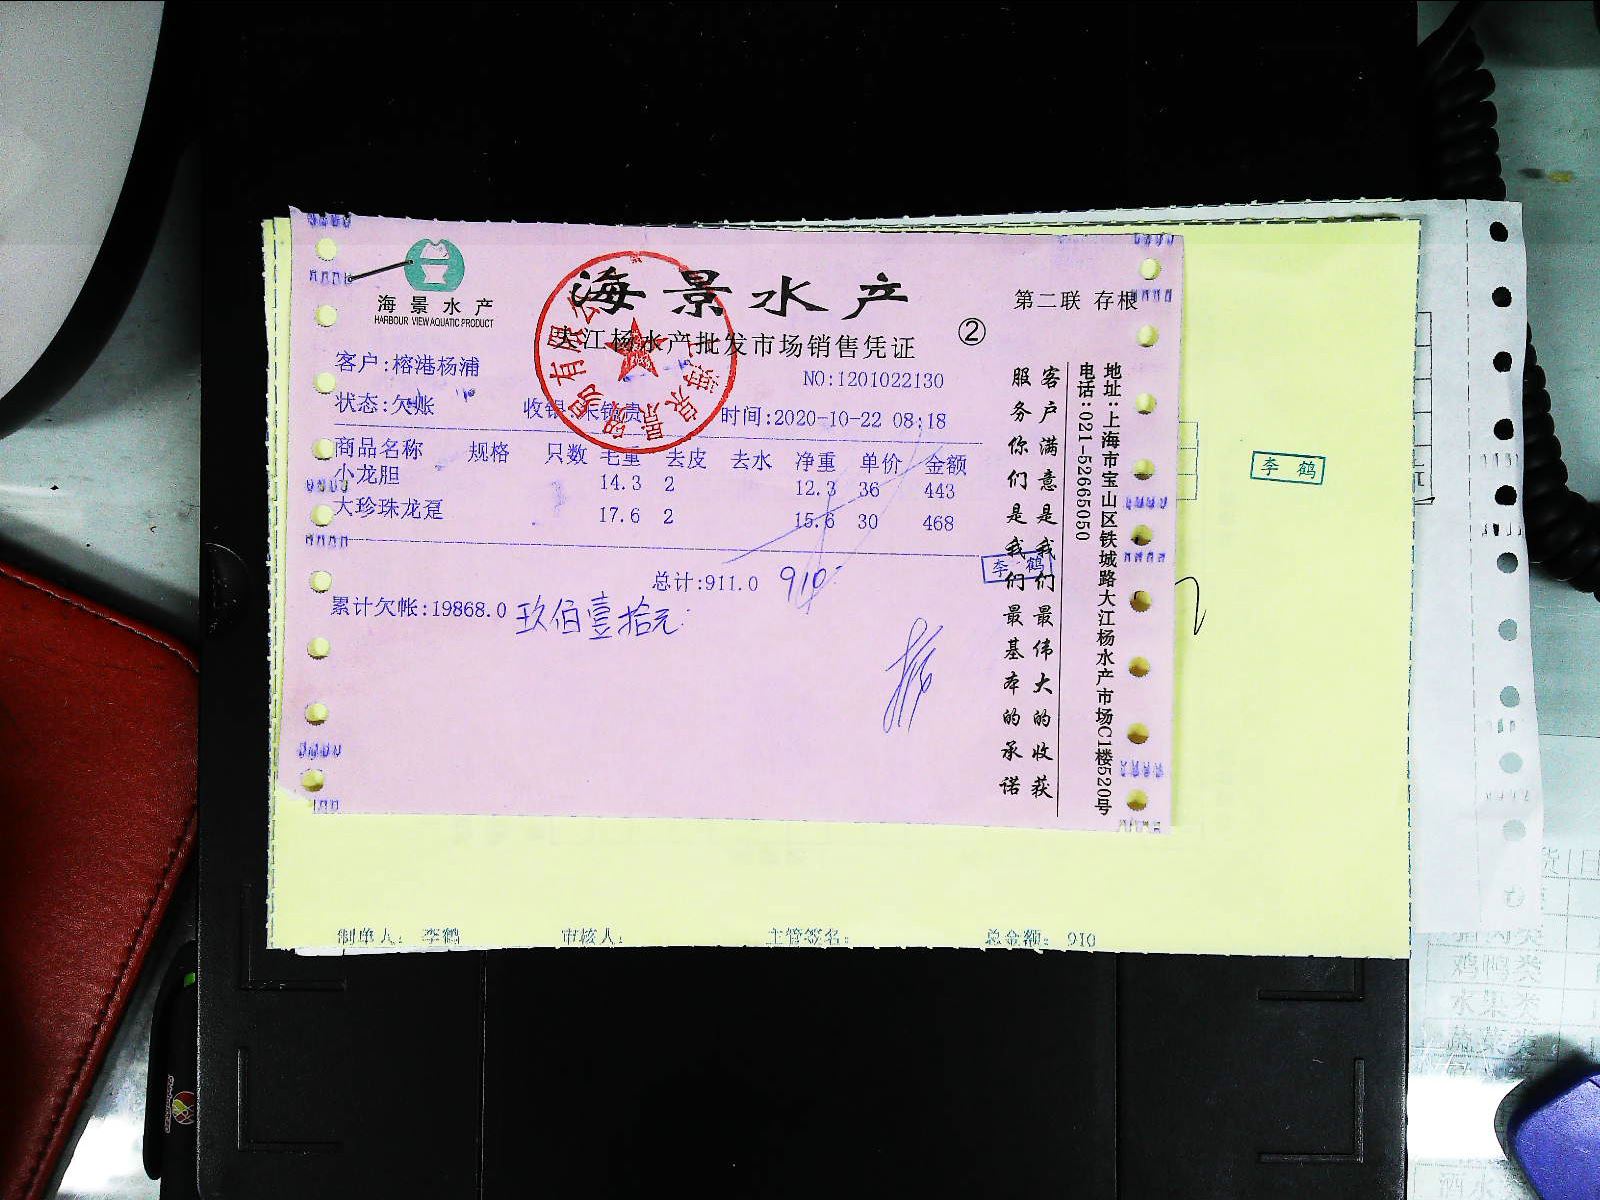 海景水产
HARBOUR VIEW AQUATIC PRODUCT
海景水产
第二联 存根
大江杨水产批发市场销售凭证
②
客户:榕港杨浦
NO:1201022130
状态:欠账
收银:
时间:2020-10-22 08:18
商品名称 规格 只数 毛重 去皮 去水 净重 单价 金额
小龙胆 14.3 2 12.3 36 443
大珍珠龙趸 17.6 2 15.6 30 468
总计:911.0 910
累计欠帐:19868.0 玖佰壹拾元
李鹤
客户满意是我们最伟大的收获
服务你们是我们最基本的承诺
地址:上海市宝山区铁城路大江杨水产市场C1楼520号
电话:021-52665050
李鹤
制单人: 李鹤 审核人: 主管签名: 总金额: 910
鸡鸭类
水集类
蔬菜类